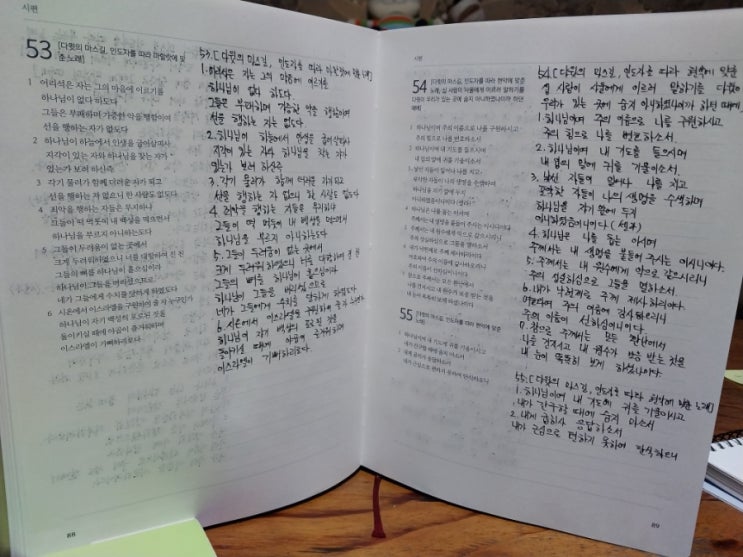 시편
53 [다윗의 마스길, 인도자를 따라 마할랏에 맞
춘 노래]
1 어리석은 자는 그의 마음에 이르기를
하나님이 없다 하도다
그들은 부패하며 가증한 악을 행함이여
선을 행하는 자가 없도다
2 하나님이 하늘에서 인생을 굽어살피사
지각이 있는 자와 하나님을 찾는 자가
있는가 보려 하신즉
3 각기 물러가 함께 더러운 자가 되고
선을 행하는 자 없으니 한 사람도 없도다
4 죄악을 행하는 자들은 무지하냐
그들이 떡 먹듯이 내 백성을 먹으면서
하나님을 부르지 아니하는도다
5 그들이 두려움이 없는 곳에서
크게 두려워하였으니 너를 대항하여 진 친
그들의 뼈를 하나님이 흩으심이라
하나님이 그들을 버리셨으므로
네가 그들에게 수치를 당하게 하였도다
6 시온에서 이스라엘을 구원하여 줄 자 누구인가
하나님이 자기 백성의 포로된 것을
돌이키실 때에 야곱이 즐거워하며
이스라엘이 기뻐하리로다
88
53. [다윗의 마스길, 인도자를 따라 마할랏에 맞춘 노래]
1. 어리석은 자는 그의 마음에 이르기를
하나님이 없다 하도다
그들은 부패하며 가증한 악을 행함이여
선을 행하는 자는 없도다
2. 하나님이 하늘에서 인생을 굽어살피사
지각이 있는 자와 하나님을 찾는 자가
있는가 보려 하신즉
3. 각기 물러가 함께 더러운 자가 되고
선을 행하는 자 없으니 한 사람도 없도다
4. 죄악을 행하는 자들은 무지하냐
그들이 떡 먹듯이 내 백성을 먹으면서
하나님을 부르지 아니하는도다
5. 그들이 두려움이 없는 곳에서
크게 두려워하였으니 너를 대항하여 진 친
그들의 뼈를 하나님이 흩으심이라
하나님이 그들을 버리셨으므로
네가 그들에게 수치를 당하게 하였도다
6. 시온에서 이스라엘을 구원하여 줄 자 누구인가
하나님이 자기 백성의 포로된 것을
돌이키실 때에 야곱이 즐거워하며
이스라엘이 기뻐하리로다.
시편
54 [다윗의 마스길, 인도자를 따라 현악에 맞춘
노래, 십 사람이 사울에게 이르러 말하기를
다윗이 우리가 있는 곳에 숨지 아니하였나이까 하던
때에]
1 하나님이여 주의 이름으로 나를 구원하시고
주의 힘으로 나를 변호하소서
2 하나님이여 내 기도를 들으시며
내 입의 말에 귀를 기울이소서
55 [다윗의 마스길, 인도자를 따라 현악에 맞춘
노래]
1 하나님이여 내 기도에 귀를 기울이시고
내가 간구할 때에 숨지 마소서
2 내게 굽히사 응답하소서
내가 근심으로 편하지 못하여 탄식하오니
54. [다윗의 마스길, 인도자를 따라 현악에 맞춘
십 사람이 사울에게 이르러 말하기를 다윗이
우리가 있는 곳에 숨지 아니하였나이까 하던 때에
1. 하나님이여 주의 이름으로 나를 구원하시고
주의 힘으로 나를 변호하소서
2. 하나님이여 내 기도를 들으시며
내 입의 말에 귀를 기울이소서.
3. 낯선 자들이 일어나 나를 치고
포악한 자들이 나의 생명을 수색하며
하나님을 자기 앞에 두지
아니하였음이니이다 (셀라)
4. 하나님은 나를 돕는 이시며
주께서는 내 생명을 붙들어 주시는 이시니이다.
5. 주께서는 내 원수에게 악으로 갚으시리니
주의 성실하심으로 그들을 멸하소서.
6. 내가 낙헌제로 주께 제사하리이다.
여호와여 주의 이름에 감사하오리니
주의 이름이 선하심이니이다.
7. 참으로 주께서는 모든 환난에서
나를 건지시고 내 원수가 보응 받는 것을
내 눈이 똑똑히 보게 하셨나이다.
55. [다윗의 마스길, 인도자를 따라 현악에 맞춘 노래]
1. 하나님이여 내 기도에 귀를 기울이시고
내가 간구할 때에 숨지 마소서
2. 내게 굽히사 응답하소서
내가 근심으로 편하지 못하여 탄식하오니
89